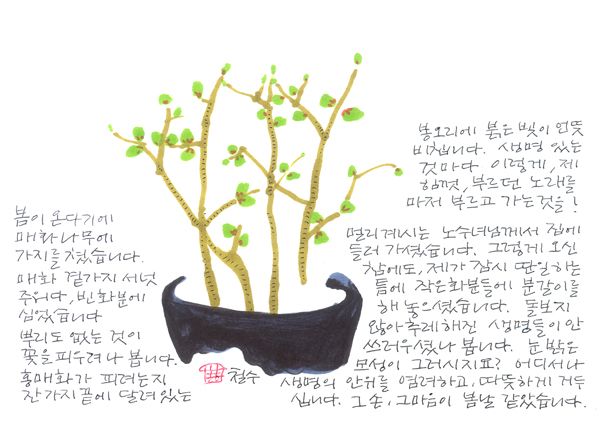 봄이 온다기에
매화나무에
가지를 쳤습니다.
매화 곁가지 서넛
주워다, 빈화분에
심었습니다
뿌리도 없는 것이
꽃을 피우려나 봅니다.
홍매화가 피려는지
잔가지 끝에 달려있는
봉오리에 붉은 빛이 언뜻
비칩니다. 생명 있는
것마다 이렇게, 제
힘껏, 부르던 노래를
마저 부르고 가는 것을!
멀리 계시는 노수녀님께서 집에
들러 가셨습니다. 그렇게 오신
참에도, 제가 잠시 딴일하는
틈에 작은화분들에 분갈이를
해 놓으셨습니다. 돌보지
않아 추레해진 생명들이 안
쓰러우셨나 봅니다. 눈 밝은
모성이 그러시지요? 어디서나
생명의 안위를 염려하고, 따뜻하게 거두
십니다. 그 손, 그 마음이 봄날 같았습니다.
철수